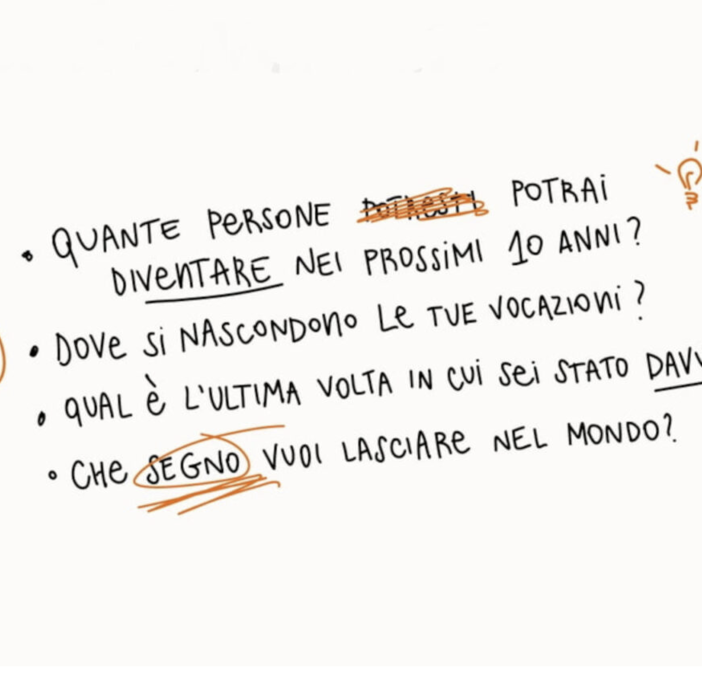 • QUANTE PERSONE POTRAI
DIVENTARE NEI PROSSIMI 10 ANNI?
• DOVE SI NASCONDONO LE TUE VOCAZIONI?
• QUAL È L'ULTIMA VOLTA IN CUI SEI STATO
• CHE SEGNO VUOI LASCIARE NEL MONDO?